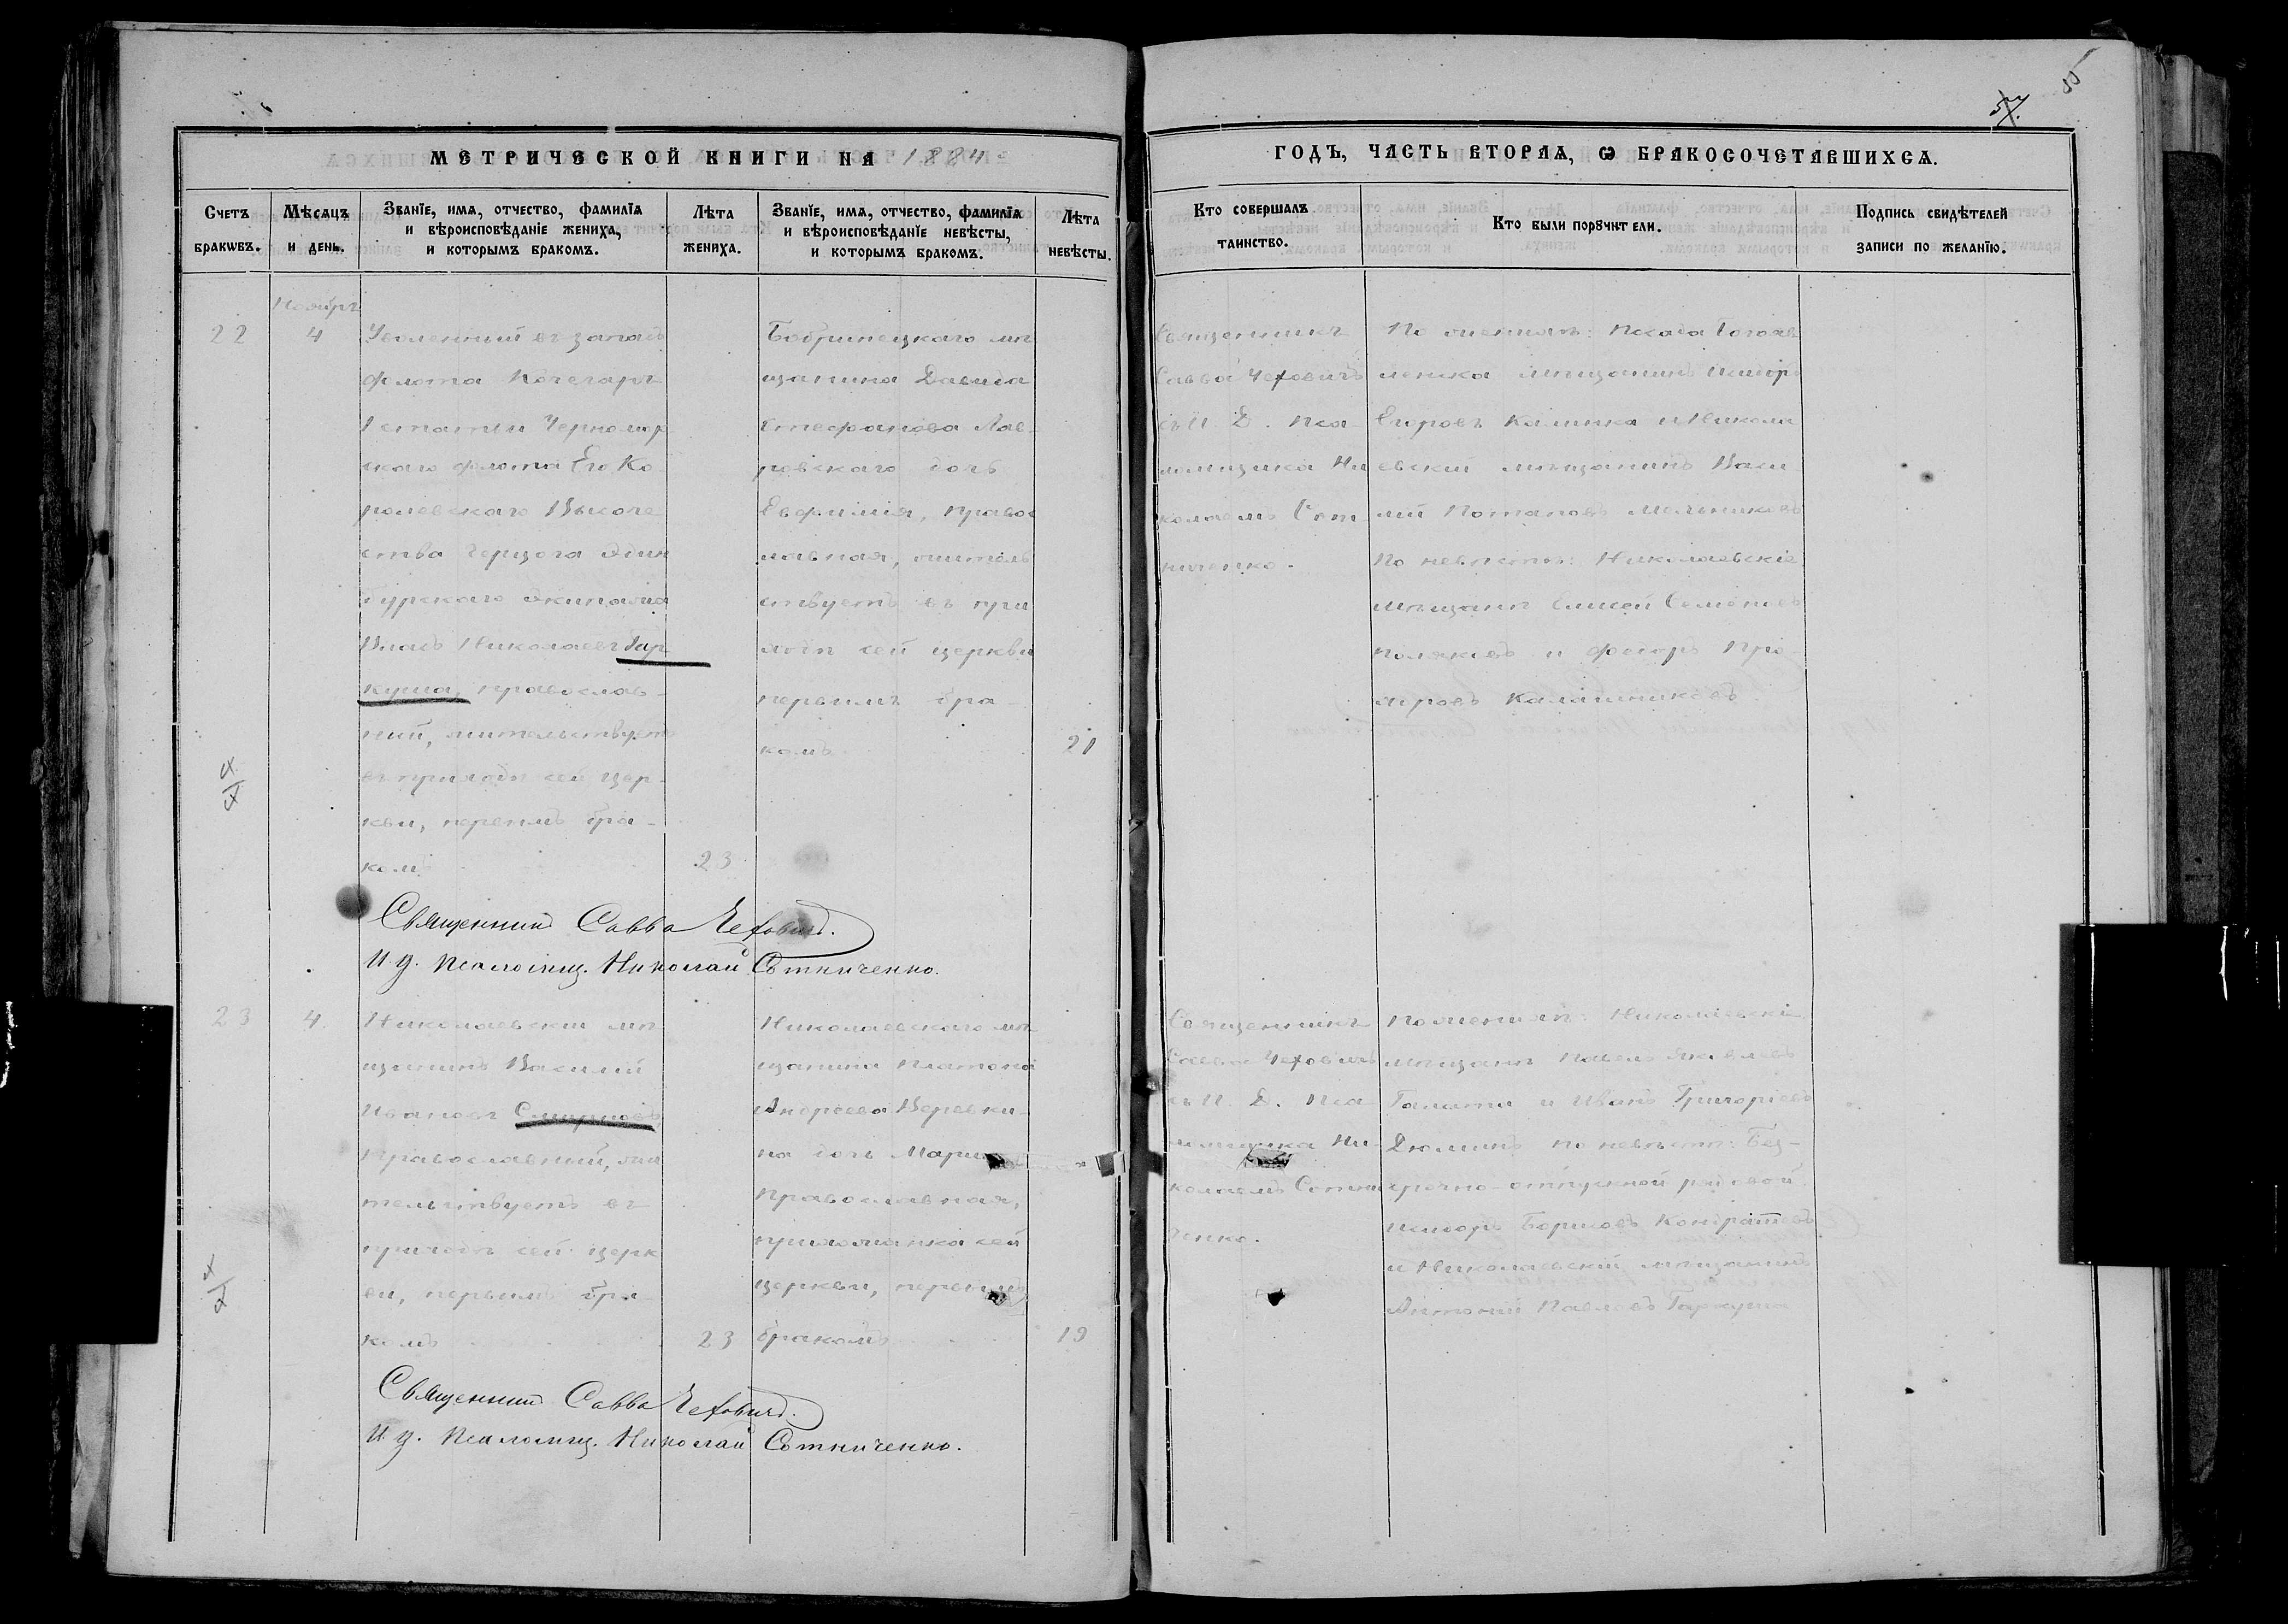 57.
55
МЕТРИЧЕСКОЙ КНИГИ НА 1884
ГОДЪ, ЧАСТЬ ВТОРАѦ, Ѡ БРАКОСОЧЕТАВШИХСѦ.
Счетъ браковъ.
Мѣсѧцъ и день.
Званїе, имѧ, отчество, фамилїѧ
и вѣроисповѣданїе жениха,
и которымъ бракомъ.
Лѣта
жениха.
Званїе, имѧ, отчество, фамилїѧ
и вѣроисповѣданїе невѣсты,
и которымъ бракомъ.
Лѣта
невѣсты.
Кто совершалъ
таинство.
Кто были порꙋчители.
Подпись свидѣтелей
записи по желанїю.
Ноябрь
22
4
Уволенный въ запасъ
флота Кочегаръ
1 статьи Черномор
скаго флота Его Ко
ролевскаго Высоче
ства Герцога Един
бургскаго экипажа
Власъ Николаевъ Гар
куша, православ-
ный, жительствуетъ
въ приходѣ сей цер-
кви, первымъ бра-
комъ
23
Бобринецкаго мѣ
щанина Давида
Стефанова Лав-
ровскаго дочь
Евфимія, правос
лавная, житель
ствуетъ въ при
ходѣ сей церкви
первымъ бра-
комъ
21
Священникъ
Савва Чеховичъ
съ И. Д. Пса
ломщика Ни
колаемъ Сот
ниченко.
По женихѣ: Посада Богояв
ленска мѣщанинъ Исидоръ
Егоровъ Калинка и Никола
евскій мѣщанинъ Васи
лій Потаповъ Мельниковъ
По невѣстѣ: Николаевскіе
мѣщане Елисей Семеновъ
Поляковъ и Федоръ Про
хоровъ Калашниковъ
Священникъ Савва Чеховичъ.
И. д. Псаломщ. Николай Сотниченко.
23
4
Николаевскій мѣ
щанинъ Василій
Ивановъ Смирновъ
Православный, жи
тельствуетъ въ
приходѣ сей церк
ви, первымъ бра-
комъ
23
Николаевскаго мѣ
щанина Платона
Андреева Веревки-
на дочь Марія
Православная,
прихожанка сей
церкви, первымъ
бракомъ
19
Священникъ
Савва Чеховичъ
съ И. Д. Пса
ломщика Ни-
колаемъ Сотни
ченко.
По женихѣ: Николаевскіе
мѣщане Павелъ Яковлевъ
и Иванъ Григорьевъ
Дюминъ По невѣстѣ: Без-
срочно-отпускной рядовой
Исидоръ Борисовъ Кондратьевъ
и Николаевскій мѣщанинъ
Антоній Павловъ Гаркуша
Священникъ Савва Чеховичъ.
И. д. Псаломщ. Николай Сотниченко.